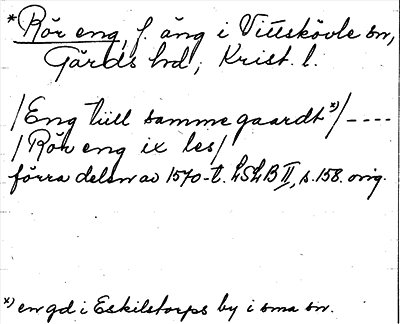 *Rör eng, f. äng i Vittskövle sn,
Gärds hd, Krist. l.
/Eng tiill samme gaardt x)/----
/Rör eng ix les/
förra delen av 1570-t. LSLB II, s. 158. orig.
x) en gd i Eskilstorps by i sma sn.